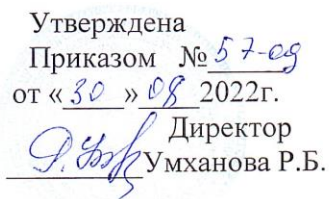 Утверждена
Приказом № 57-од
от «30» 08 2022г.
Директор
Умханова Р.Б.